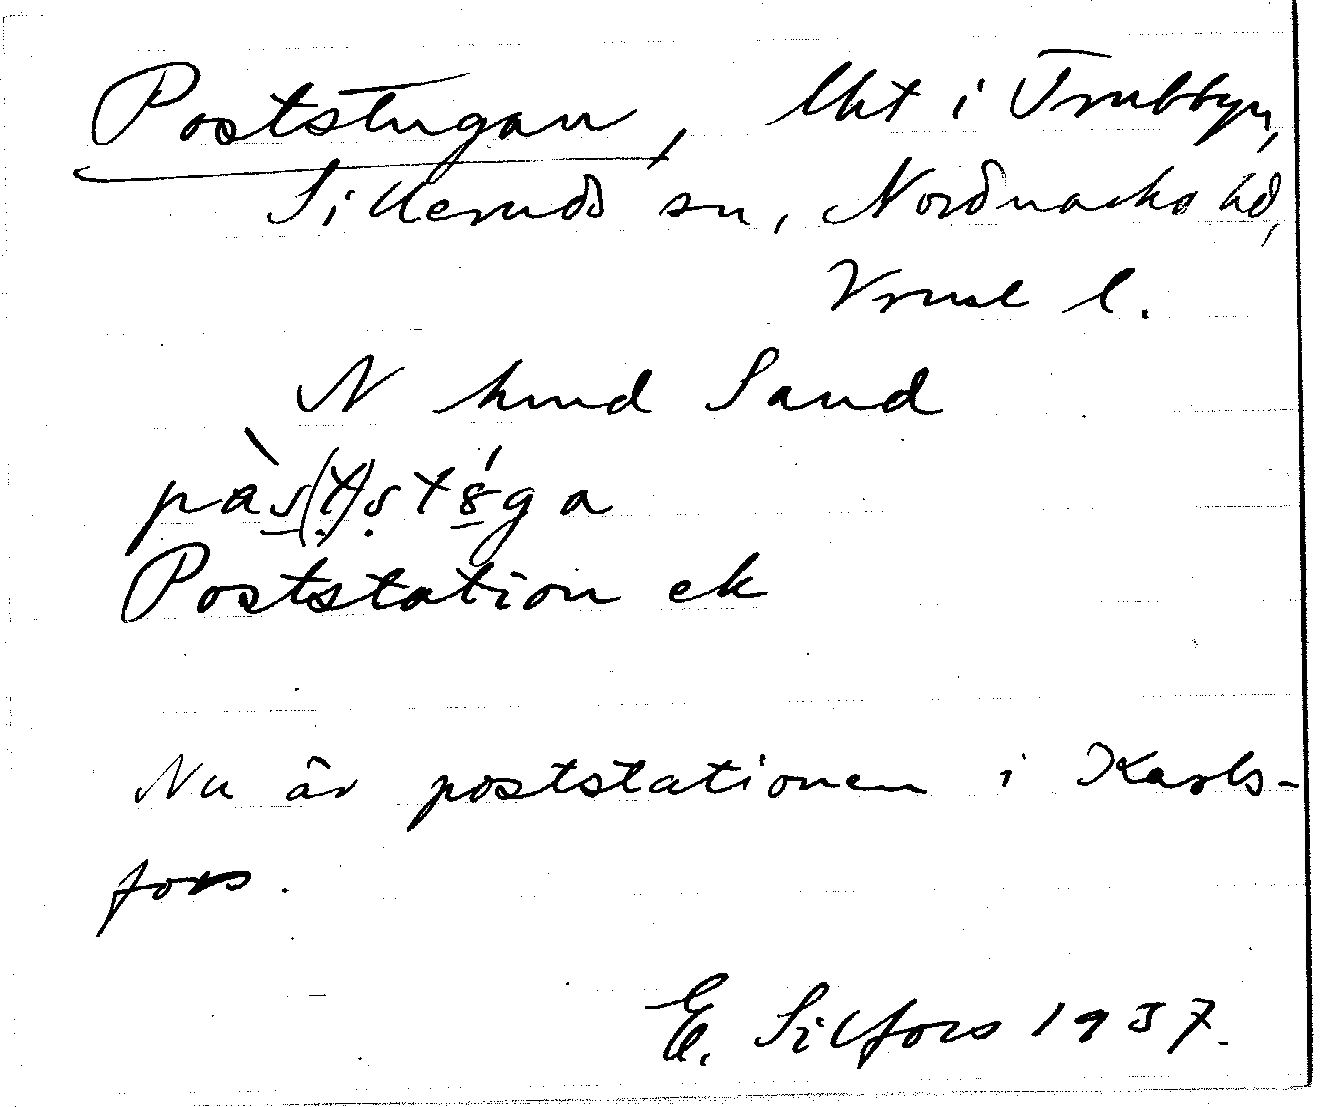 Poststugan, lht i Trubbyn,
Sillerudс sn, Nordmarks hd,
Vrml l.
N hmd Sand
pàs(t)stɞ́ga
Poststation ek
Nu är poststationen i Karls-
fors.
E. Silfors 1937.